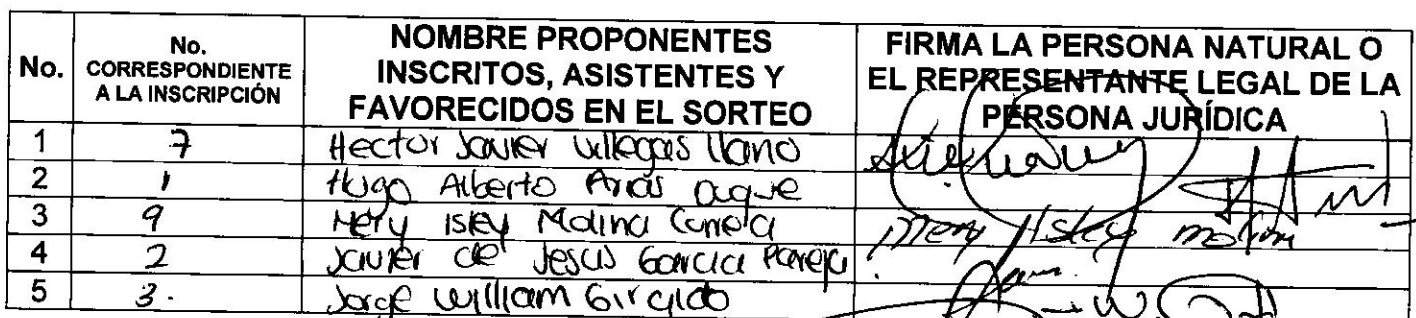 No. No. CORRESPONDIENTE A LA INSCRIPCIÓN NOMBRE PROPONENTES INSCRITOS, ASISTENTES Y FAVORECIDOS EN EL SORTEO FIRMA LA PERSONA NATURAL O EL REPRESENTANTE LEGAL DE LA PERSONA JURÍDICA
1 7 Hector Javier Villegas Llano
2 1 Hugo Alberto Arias Duque
3 9 Mery Isley Molina Correa Mery Isley Molina
4 2 Javier de Jesus Garcia Pareja
5 3. Jorge William Giraldo